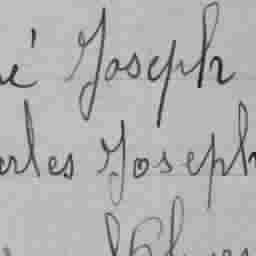 é Joseph
rles Joseph